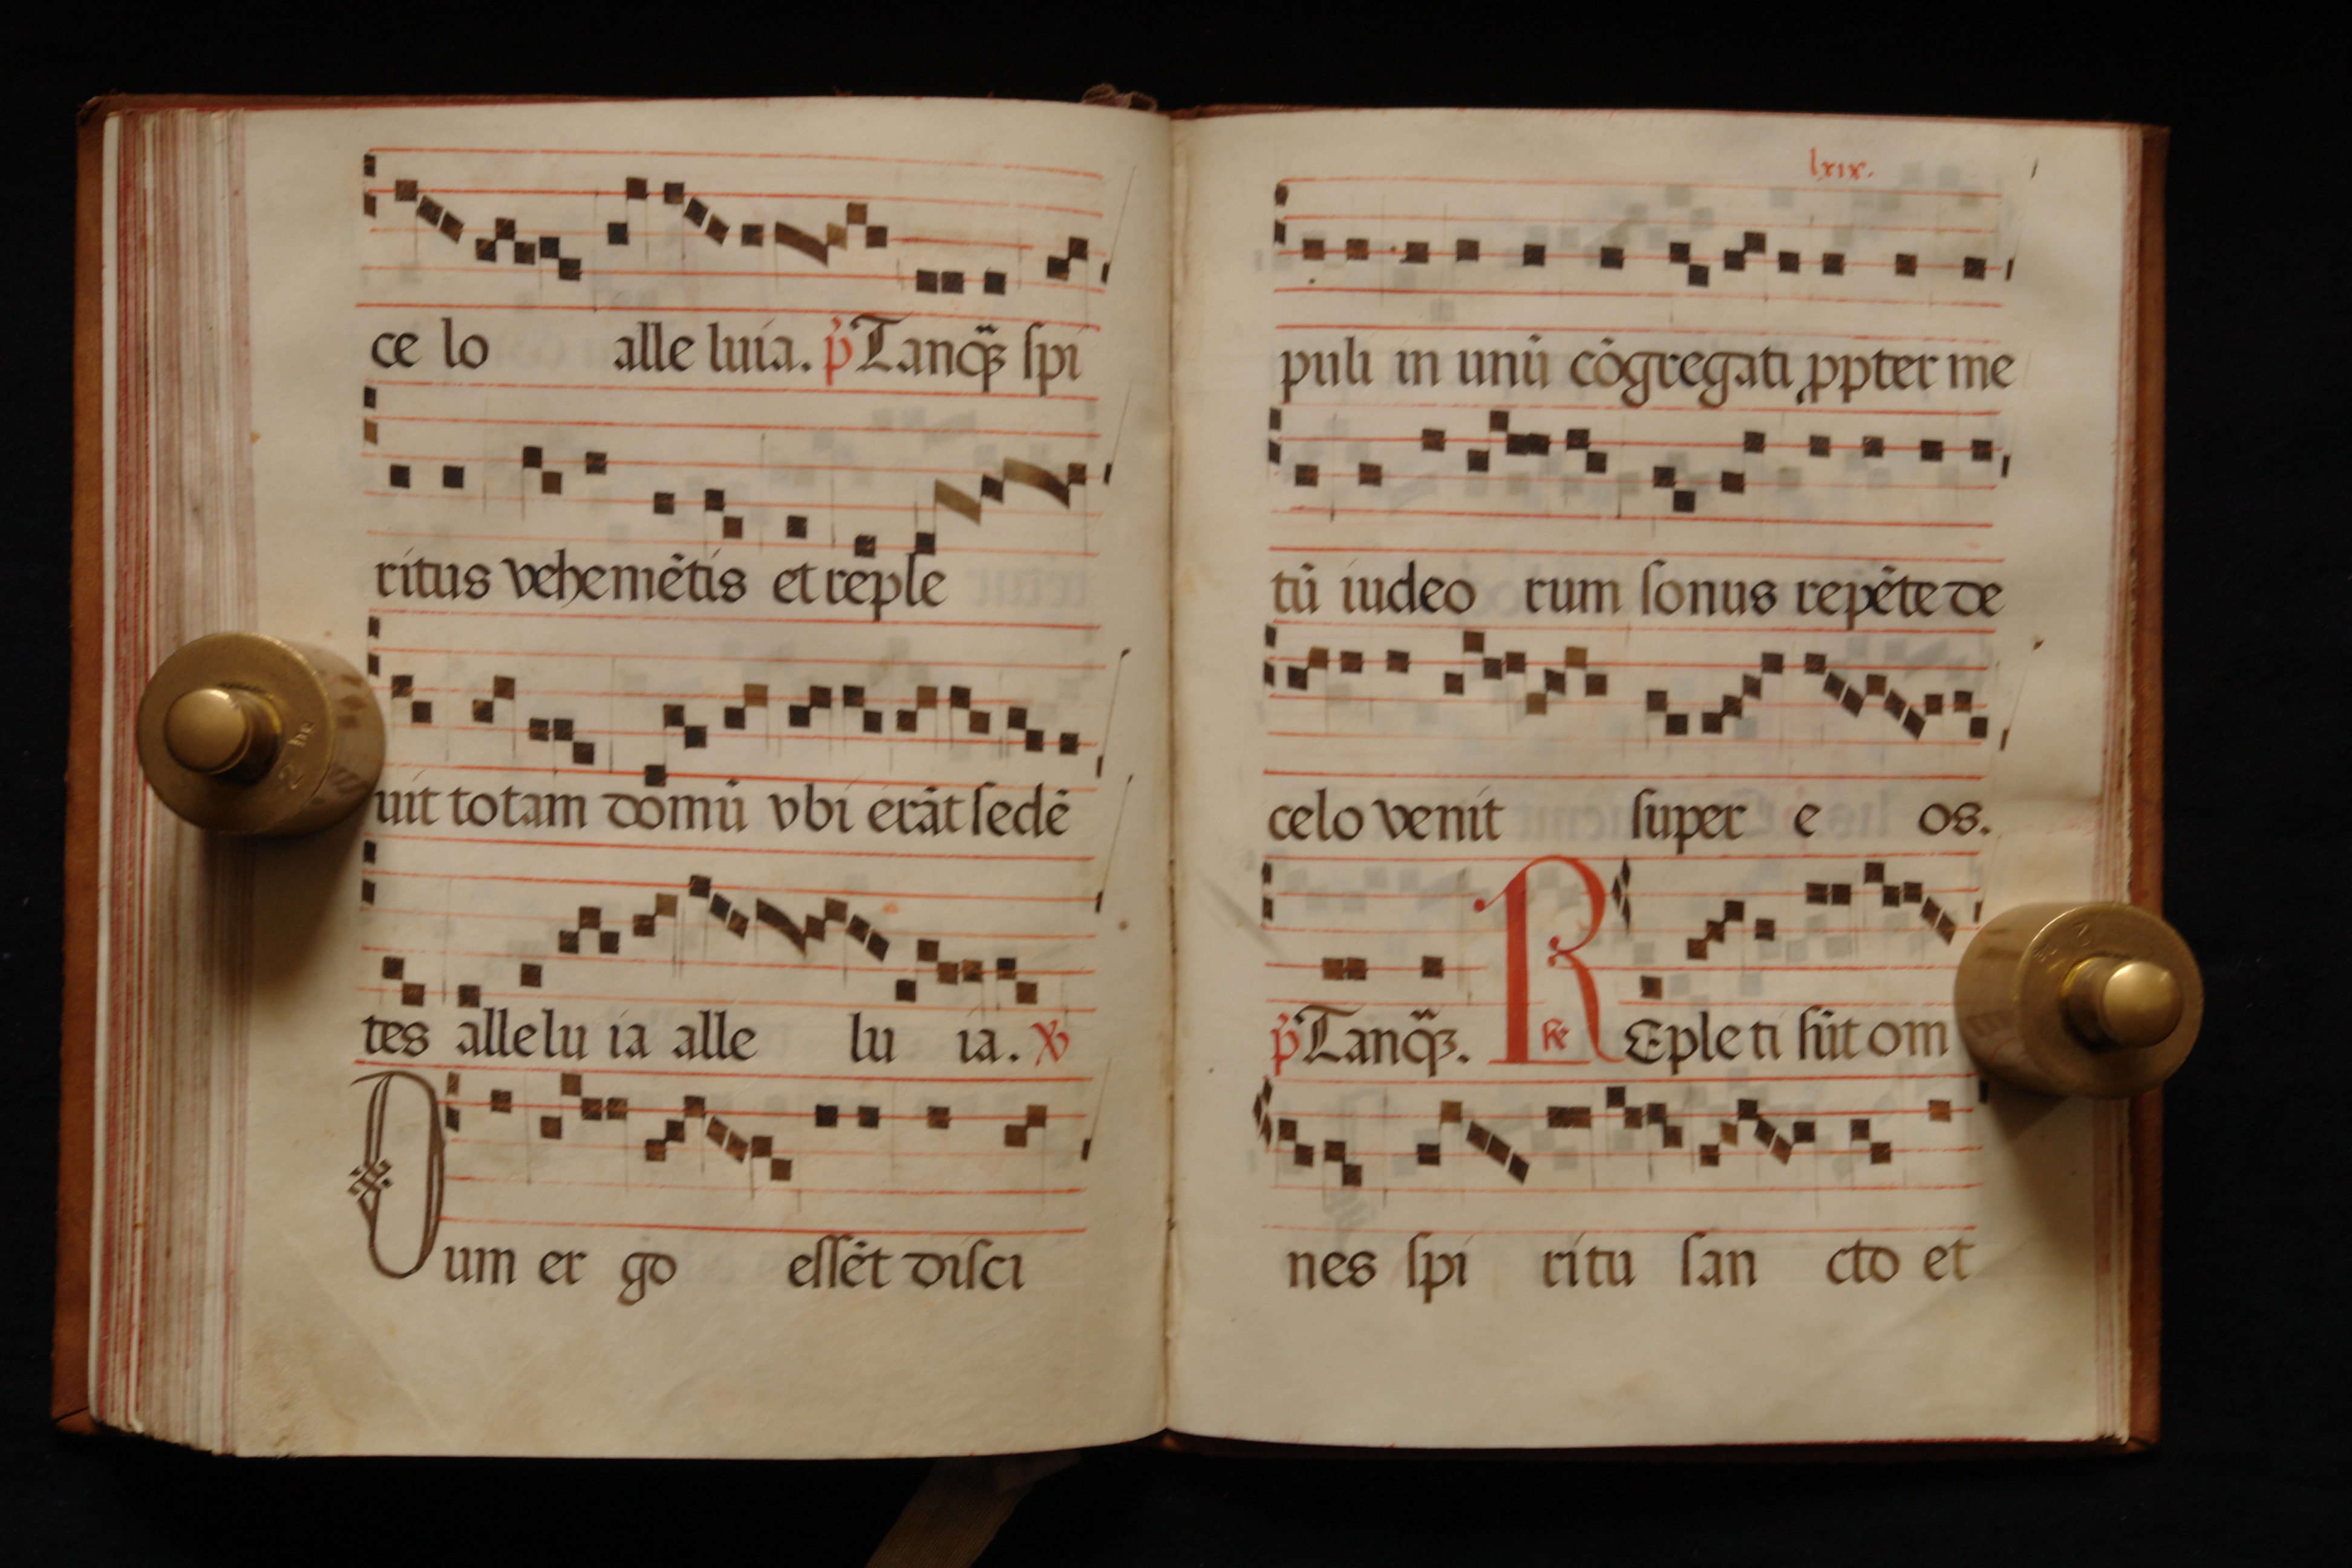 ce lo alle luia. p̄ Tanq̄ʒ spi
ritus vehemētis et reple
uit totam domū vbi erāt sedē
tes allelu ia alle lu ia. ℣
Dum er go essēt disci
lxix.
puli in unū cōgregati ꝓpter me
tū iudeo rum sonus repēte de
celo venit super e os.
p̄ Tanq̄ʒ. R Eple ti sūt om
nes spi ritu san cto et